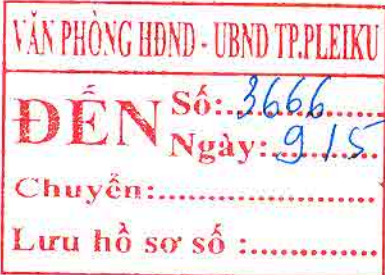 VĂN PHÒNG HĐND - UBND TP.PLEIKU
ĐẾN Số: 3666
Ngày: 9/5
Chuyển:
Lưu hồ sơ số :